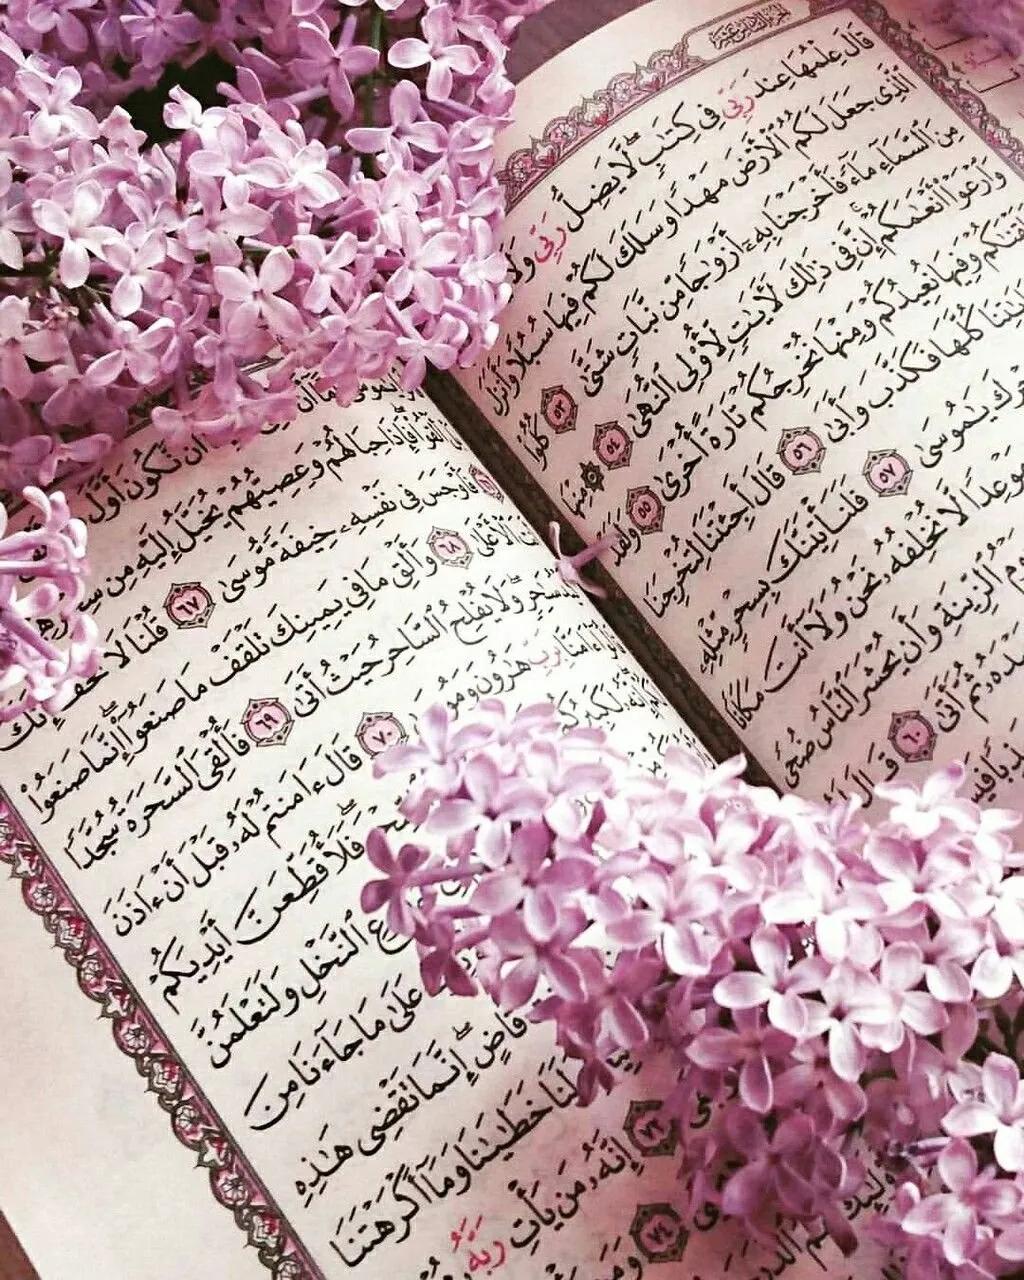 قَالَ عِلْمُهَا عِندَ رَبِّى فِى كِتَٰبٍ لَّا يَضِلُّ رَبِّى وَلَا
ٱلَّذِى جَعَلَ لَكُمُ ٱلْأَرْضَ مَهْدًا وَسَلَكَ لَكُمْ فِيهَا سُبُلًا وَأَنزَلَ
مِنَ ٱلسَّمَآءِ مَآءً فَأَخْرَجْنَا بِهِۦٓ أَزْوَٰجًا مِّن نَّبَاتٍ شَتَّىٰ ٥٣ كُلُوا۟
وَٱرْعَوْا۟ أَنْعَٰمَكُمْ إِنَّ فِى ذَٰلِكَ لَءَايَٰتٍ لِّأُو۟لِى ٱلنُّهَىٰ ٥٤ مِنْهَا
وَفِيهَا نُعِيدُكُمْ وَمِنْهَا نُخْرِجُكُمْ تَارَةً أُخْرَىٰ ٥٥ وَلَقَدْ
كُلَّهَا فَكَذَّبَ وَأَبَىٰ ٥٦ قَالَ أَجِئْتَنَا لِتُخْرِجَنَا
يَٰمُوسَىٰ ٥٧ فَلَنَأْتِيَنَّكَ بِسِحْرٍ مِّثْلِهِۦ
مَوْعِدًا لَّا نُخْلِفُهُۥ نَحْنُ وَلَآ أَنتَ مَكَانًا
ٱلزِّينَةِ وَأَن يُحْشَرَ ٱلنَّاسُ ضُحًى
ثُمَّ أَتَىٰ ٦٠ قَالَ
أَن نَّكُونَ أَوَّلَ
فَإِذَا حِبَالُهُمْ وَعِصِيُّهُمْ يُخَيَّلُ إِلَيْهِ مِن
فَأَوْجَسَ فِى نَفْسِهِۦ خِيفَةً مُّوسَىٰ ٦٧ قُلْنَا لَا تَخَفْ إِنَّكَ
ٱلْأَعْلَىٰ ٦٨ وَأَلْقِ مَا فِى يَمِينِكَ تَلْقَفْ مَا صَنَعُوٓا۟ إِنَّمَا صَنَعُوا۟
سَٰحِرٍ وَلَا يُفْلِحُ ٱلسَّاحِرُ حَيْثُ أَتَىٰ ٦٩ فَأُلْقِىَ ٱلسَّحَرَةُ سُجَّدًا
ءَامَنَّا بِرَبِّ هَٰرُونَ وَمُوسَىٰ ٧٠ قَالَ ءَامَنتُمْ لَهُۥ قَبْلَ أَنْ ءَاذَنَ
لَكَبِيرُكُمُ فَلَأُقَطِّعَنَّ أَيْدِيَكُمْ
ٱلنَّخْلِ وَلَتَعْلَمُنَّ
عَلَىٰ مَا جَآءَنَا مِنَ
قَاضٍ إِنَّمَا تَقْضِى هَٰذِهِ
لَنَا خَطَٰيَٰنَا وَمَآ أَكْرَهْتَنَا
٧٣ إِنَّهُۥ مَن يَأْتِ رَبَّهُۥ
٧٤